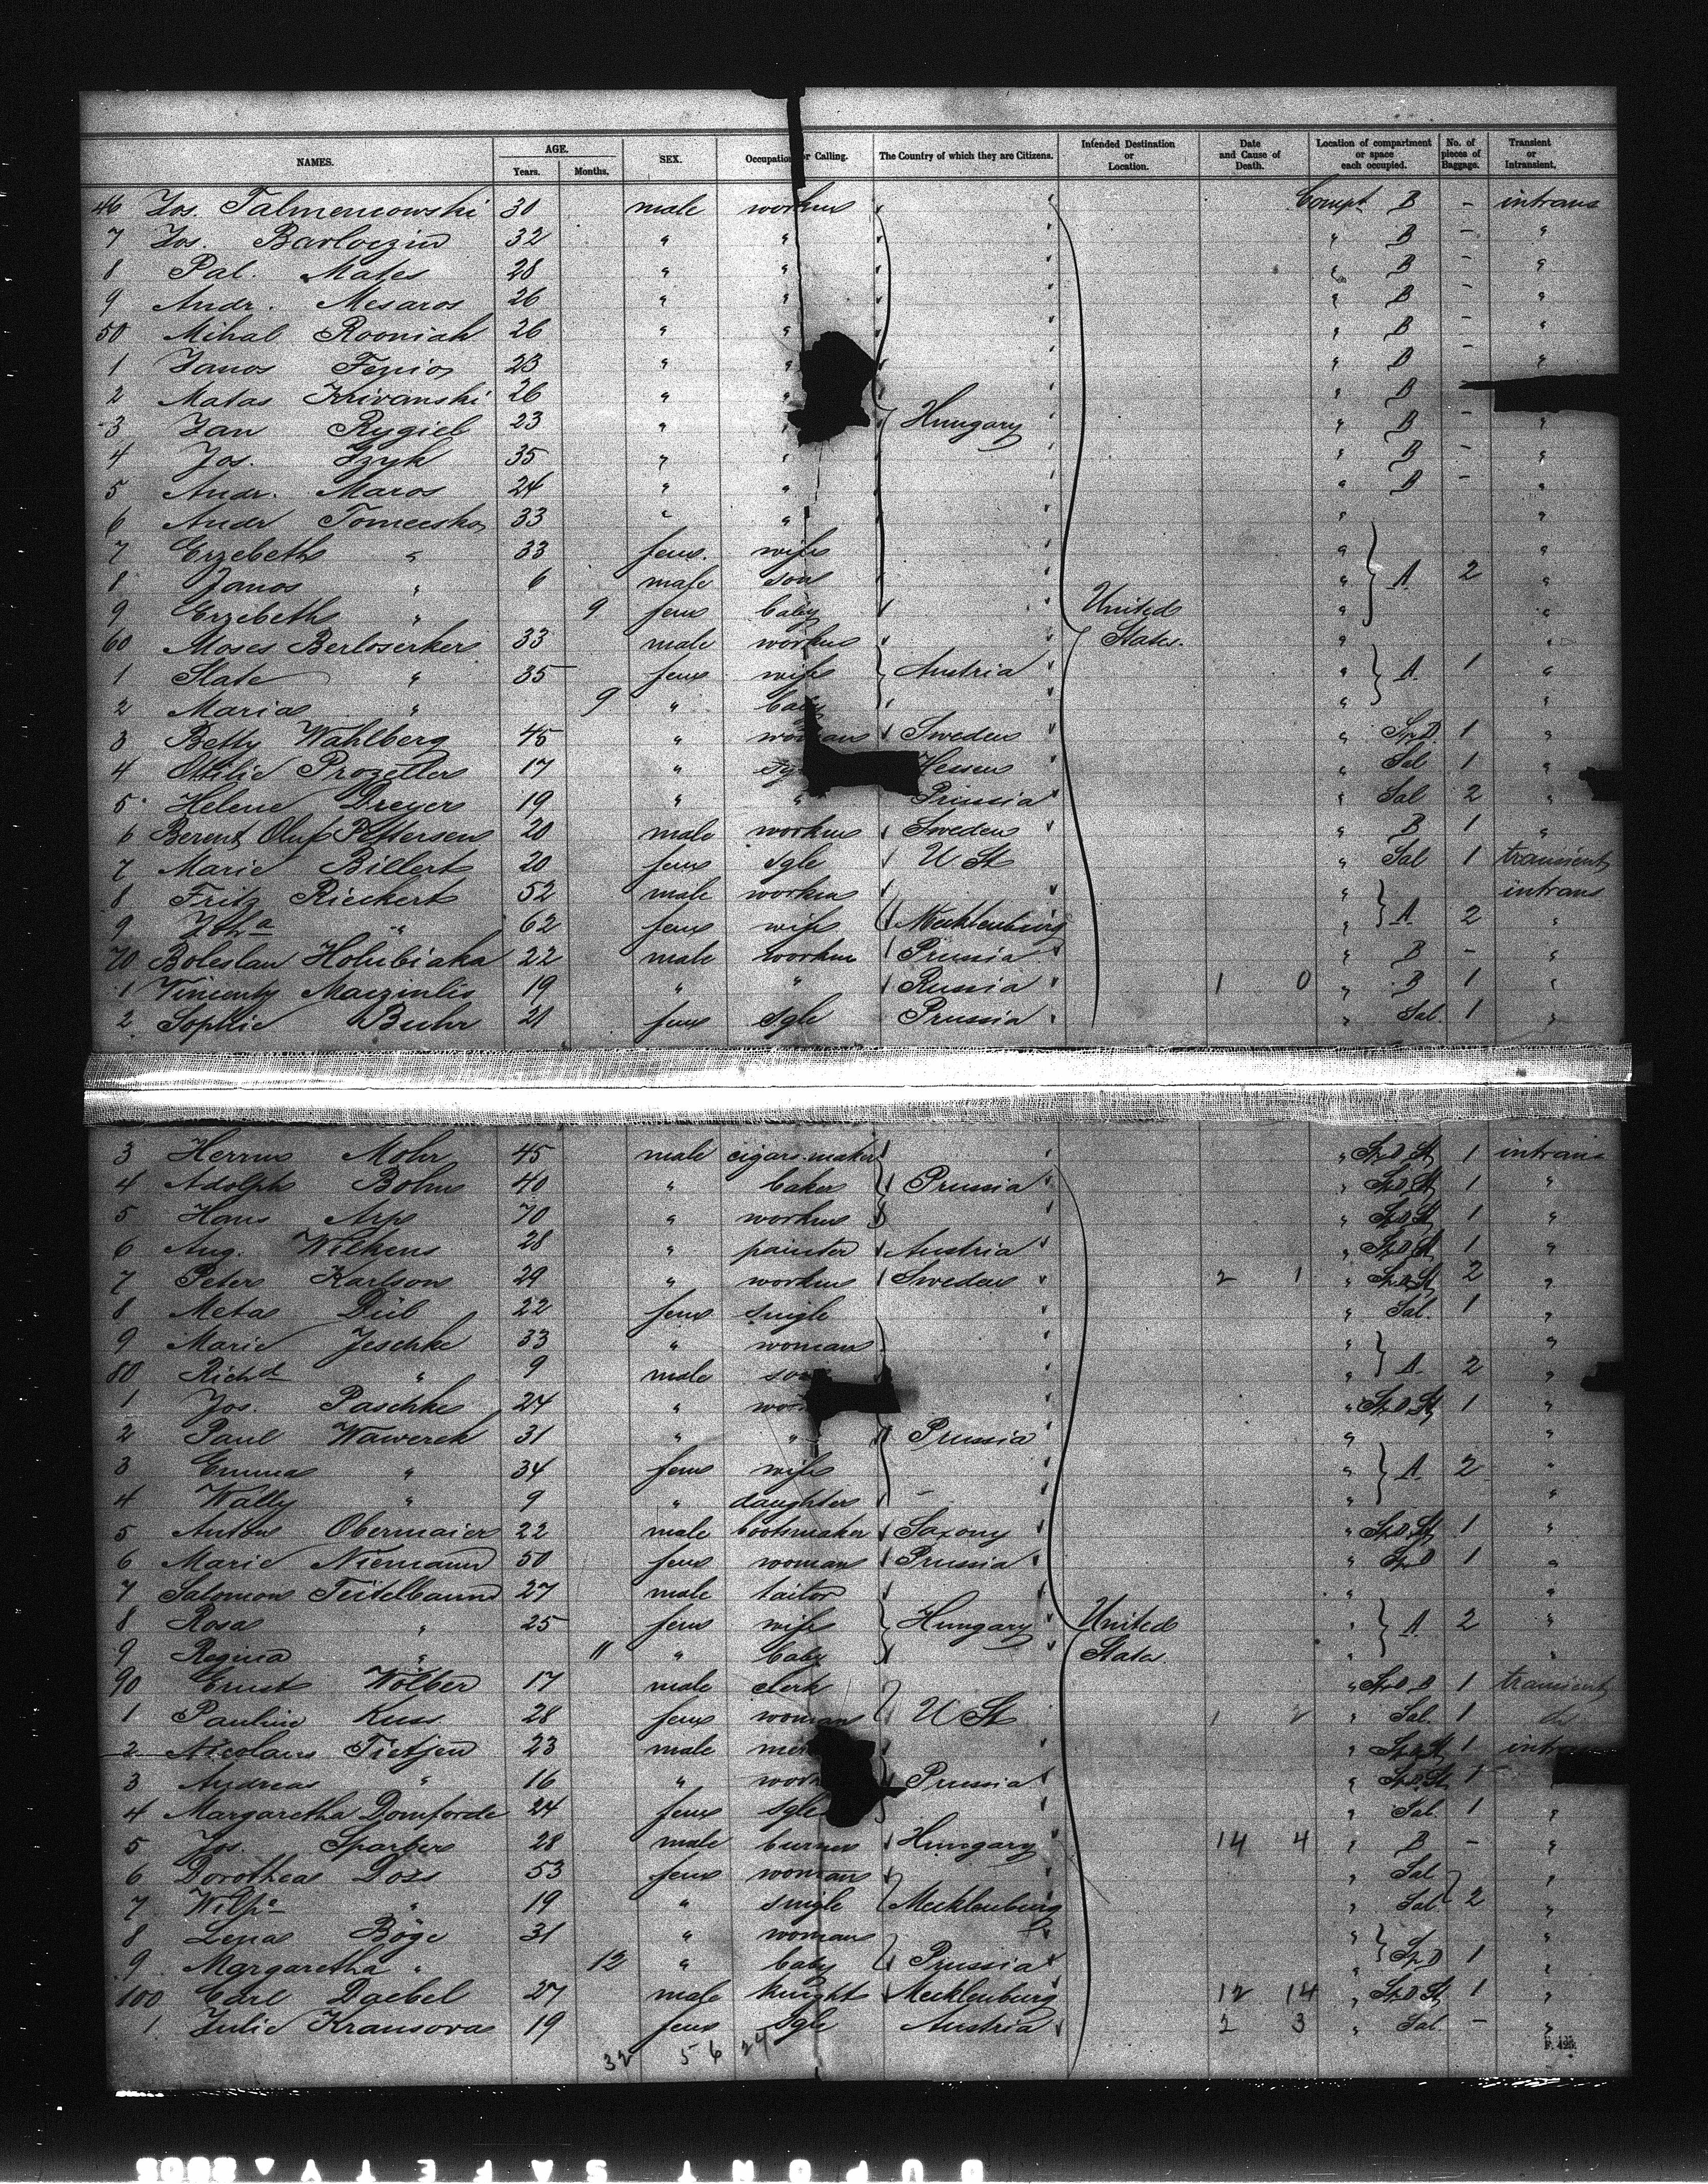 NAMES. AGE. Years. Months. SEX. Occupation or Calling. The Country of which they are Citizens. Intended Destination or Location. Date and Cause of Death. Location of compartment or space each occupied. No. of pieces of Baggage. Transient or Intransient.
46 Jos. Talmencowski 30 male workm Compt B - intrans
7 Jos. Barloczin 32 " " " B - "
8 Pal. Mates 28 " " " B - "
9 Andr. Mesaros 26 " " " B - "
50 Mihal Rooniak 26 " " " B - "
1 Janos Fenio 23 " " " B - "
2 Matas Krivanski 26 " " " B
3 Jan Rygieb 23 " " Hungary " B - "
4 Jos. Gzyk 35 " " " B - "
5 Andr. Maros 24 " " " B - "
6 Andr Tomecsko 33 " " " "
7 Erzebeth " 33 fem. wife " "
8 Janos " 6 male son " A 2 "
9 Erzebeth " 9 fem baby United " "
60 Moses Berloserker 33 male workm States. " "
1 Slate " 35 fem wife Austria " A 1 "
2 Maria " 9 " baby " "
3 Betty Wahlberg 45 " woman Sweden " Sp.D. 1 "
4 Ottilie Prozeller 17 " sg Hessen " Sal 1 "
5 Helene Dreyer 19 " " Prussia " Sal 2 "
6 Berent Oluf Pettersen 20 male workm Sweden " B 1 "
7 Marie Billert 20 fem sgle U St " Sal 1 transient
8 Fritz Rieckert 52 male workm " intrans
9 Joha " 62 fem wife Mecklenburg " A 2 "
70 Boleslau Holubiaka 22 male workm Prussia " B - "
1 Vincenty Maczinlis 19 " " Russia 1 0 " B 1 "
2 Sophie Buhr 21 fem sgle Prussia " Sal. 1 "
3 Herm Mohr 45 male cigars-maker " Sp.D St 1 intrans
4 Adolph Bohm 40 " baker Prussia " Sp.D St 1 "
5 Hans Arp 70 " workm " Sp.D St 1 "
6 Aug. Wilkens 28 " painter Austria " Sp.D St 1 "
7 Peter Karlson 29 " workm Sweden 2 1 " Sp.D St 2 "
8 Meta Düb 22 fem single " Sal. 1 "
9 Marie Jeschke 33 " woman " "
80 Richd " 9 male son " A 2 "
1 Jos. Paschke 24 " wor " Sp.D St 1 "
2 Paul Wawerek 31 " " Prussia " "
3 Emma " 34 fem wife " A 2 "
4 Wally " 9 " daughter - " "
5 Anton Obermaier 22 male bootmaker Saxony " Sp.D St 1 "
6 Marie Niemann 50 fem woman Prussia " Sp.D 1 "
7 Salomon Teitelbaum 27 male tailor " "
8 Rosa " 25 fem wife Hungary United " A 2 "
9 Regina " 11 " baby States " "
90 Ernst Wölber 17 male clerk " Sp.D. B 1 transient
1 Pauline Kuss 28 fem woman U St 1 " Sal. 1
2 Nicolaus Tietjen 23 male " Sp.D St 1 intrans
3 Andreas " 16 " work Prussia " Sp.D. St 1
4 Margaretha Domforde 24 fem sgle " Sal. 1 "
5 Jos. Sparber 28 male Hungary 14 4 " B - "
6 Dorothea Doss 53 fem woman " Sal "
7 Wilhe " 19 " single Mecklenburg " Sal. 2 "
8 Lena Böge 31 " woman " "
9 Margaretha " 12 " baby Prussia " Sp.D 1 "
100 Carl Daebel 27 male knight Mecklenburg 12 14 " Sp.D St 1 "
1 Julie Krausova 19 fem sgle Austria 2 3 " Sal - "
32 56 24